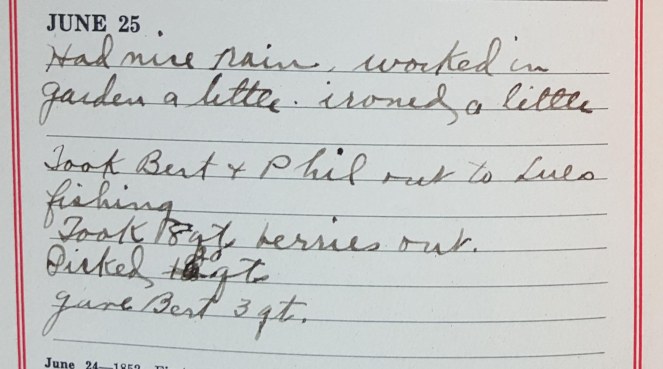 JUNE 25
Had nice rain, worked in
garden a little. ironed, a little
Took Bert & Phil out to Lues
fishing
Took 18 qt berries out.
Picked, qts
gave Bert 3 qt.
June 24—1852.